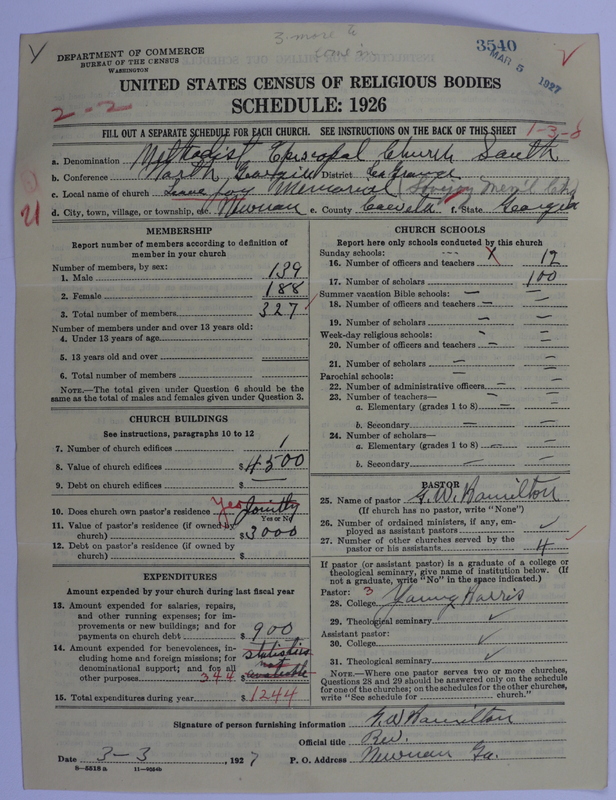 3 more to
3540
MAR 5 1927
DEPARTMENT OF COMMERCE
BUREAU OF THE CENSUS
WASHINGTON
UNITED STATES CENSUS OF RELIGIOUS BODIES
SCHEDULE: 1926
2-2
FILL OUT A SEPARATE SCHEDULE FOR EACH CHURCH. SEE INSTRUCTIONS ON THE BACK OF THIS SHEET
1-3-8
a. Denomination Methodist Episcopal Church South
b. Conference North Georgia District La Grange
c. Local name of church Memorial
d. City, town, village, or township, etc. Newnan e. County Coweta f. State Georgia
MEMBERSHIP
Report number of members according to definition of
member in your church
Number of members, by sex:
1. Male 139
2. Female 188
3. Total number of members 327
Number of members under and over 13 years old:
4. Under 13 years of age
5. 13 years old and over
6. Total number of members
NOTE.—The total given under Question 6 should be the
same as the total of males and females given under Question 3.
CHURCH BUILDINGS
See instructions, paragraphs 10 to 12
7. Number of church edifices 1
8. Value of church edifices $4500
9. Debt on church edifices $ —
10. Does church own pastor's residence? Yes Jointly
Yes or No
11. Value of pastor's residence (if owned by
church) $3000
12. Debt on pastor's residence (if owned by
church) $
EXPENDITURES
Amount expended by your church during last fiscal year
13. Amount expended for salaries, repairs,
and other running expenses; for im-
provements or new buildings; and for
payments on church debt $900
14. Amount expended for benevolences, in-
cluding home and foreign missions; for
denominational support; and for all
other purposes 344 $ statistics
not
available
15. Total expenditures during year $1244
CHURCH SCHOOLS
Report here only schools conducted by this church
Sunday schools:
16. Number of officers and teachers X 12
17. Number of scholars 100
Summer vacation Bible schools: — —
18. Number of officers and teachers — —
19. Number of scholars — —
Week-day religious schools: — —
20. Number of officers and teachers — —
21. Number of scholars — —
Parochial schools: — —
22. Number of administrative officers — —
23. Number of teachers—
a. Elementary (grades 1 to 8) — —
b. Secondary — —
24. Number of scholars—
a. Elementary (grades 1 to 8) — —
b. Secondary — —
PASTOR
25. Name of pastor G. W. Hamilton
(If church has no pastor, write "None")
26. Number of ordained ministers, if any, em-
ployed as assistant pastors
27. Number of other churches served by the
pastor or his assistants 4
If pastor (or assistant pastor) is a graduate of a college or
theological seminary, give name of institution below. (If
not a graduate, write "No" in the space indicated.)
Pastor: 3
28. College Young Harris
29. Theological seminary
Assistant pastor:
30. College
31. Theological seminary
NOTE.—Where one pastor serves two or more churches,
Questions 28 and 29 should be answered only on the schedule
for one of the churches; on the schedules for the other churches,
write "See schedule for church."
Signature of person furnishing information G. W. Hamilton
Official title Rev.
Date 3-3, 1927 P. O. Address Newnan Ga.
8-5518 a